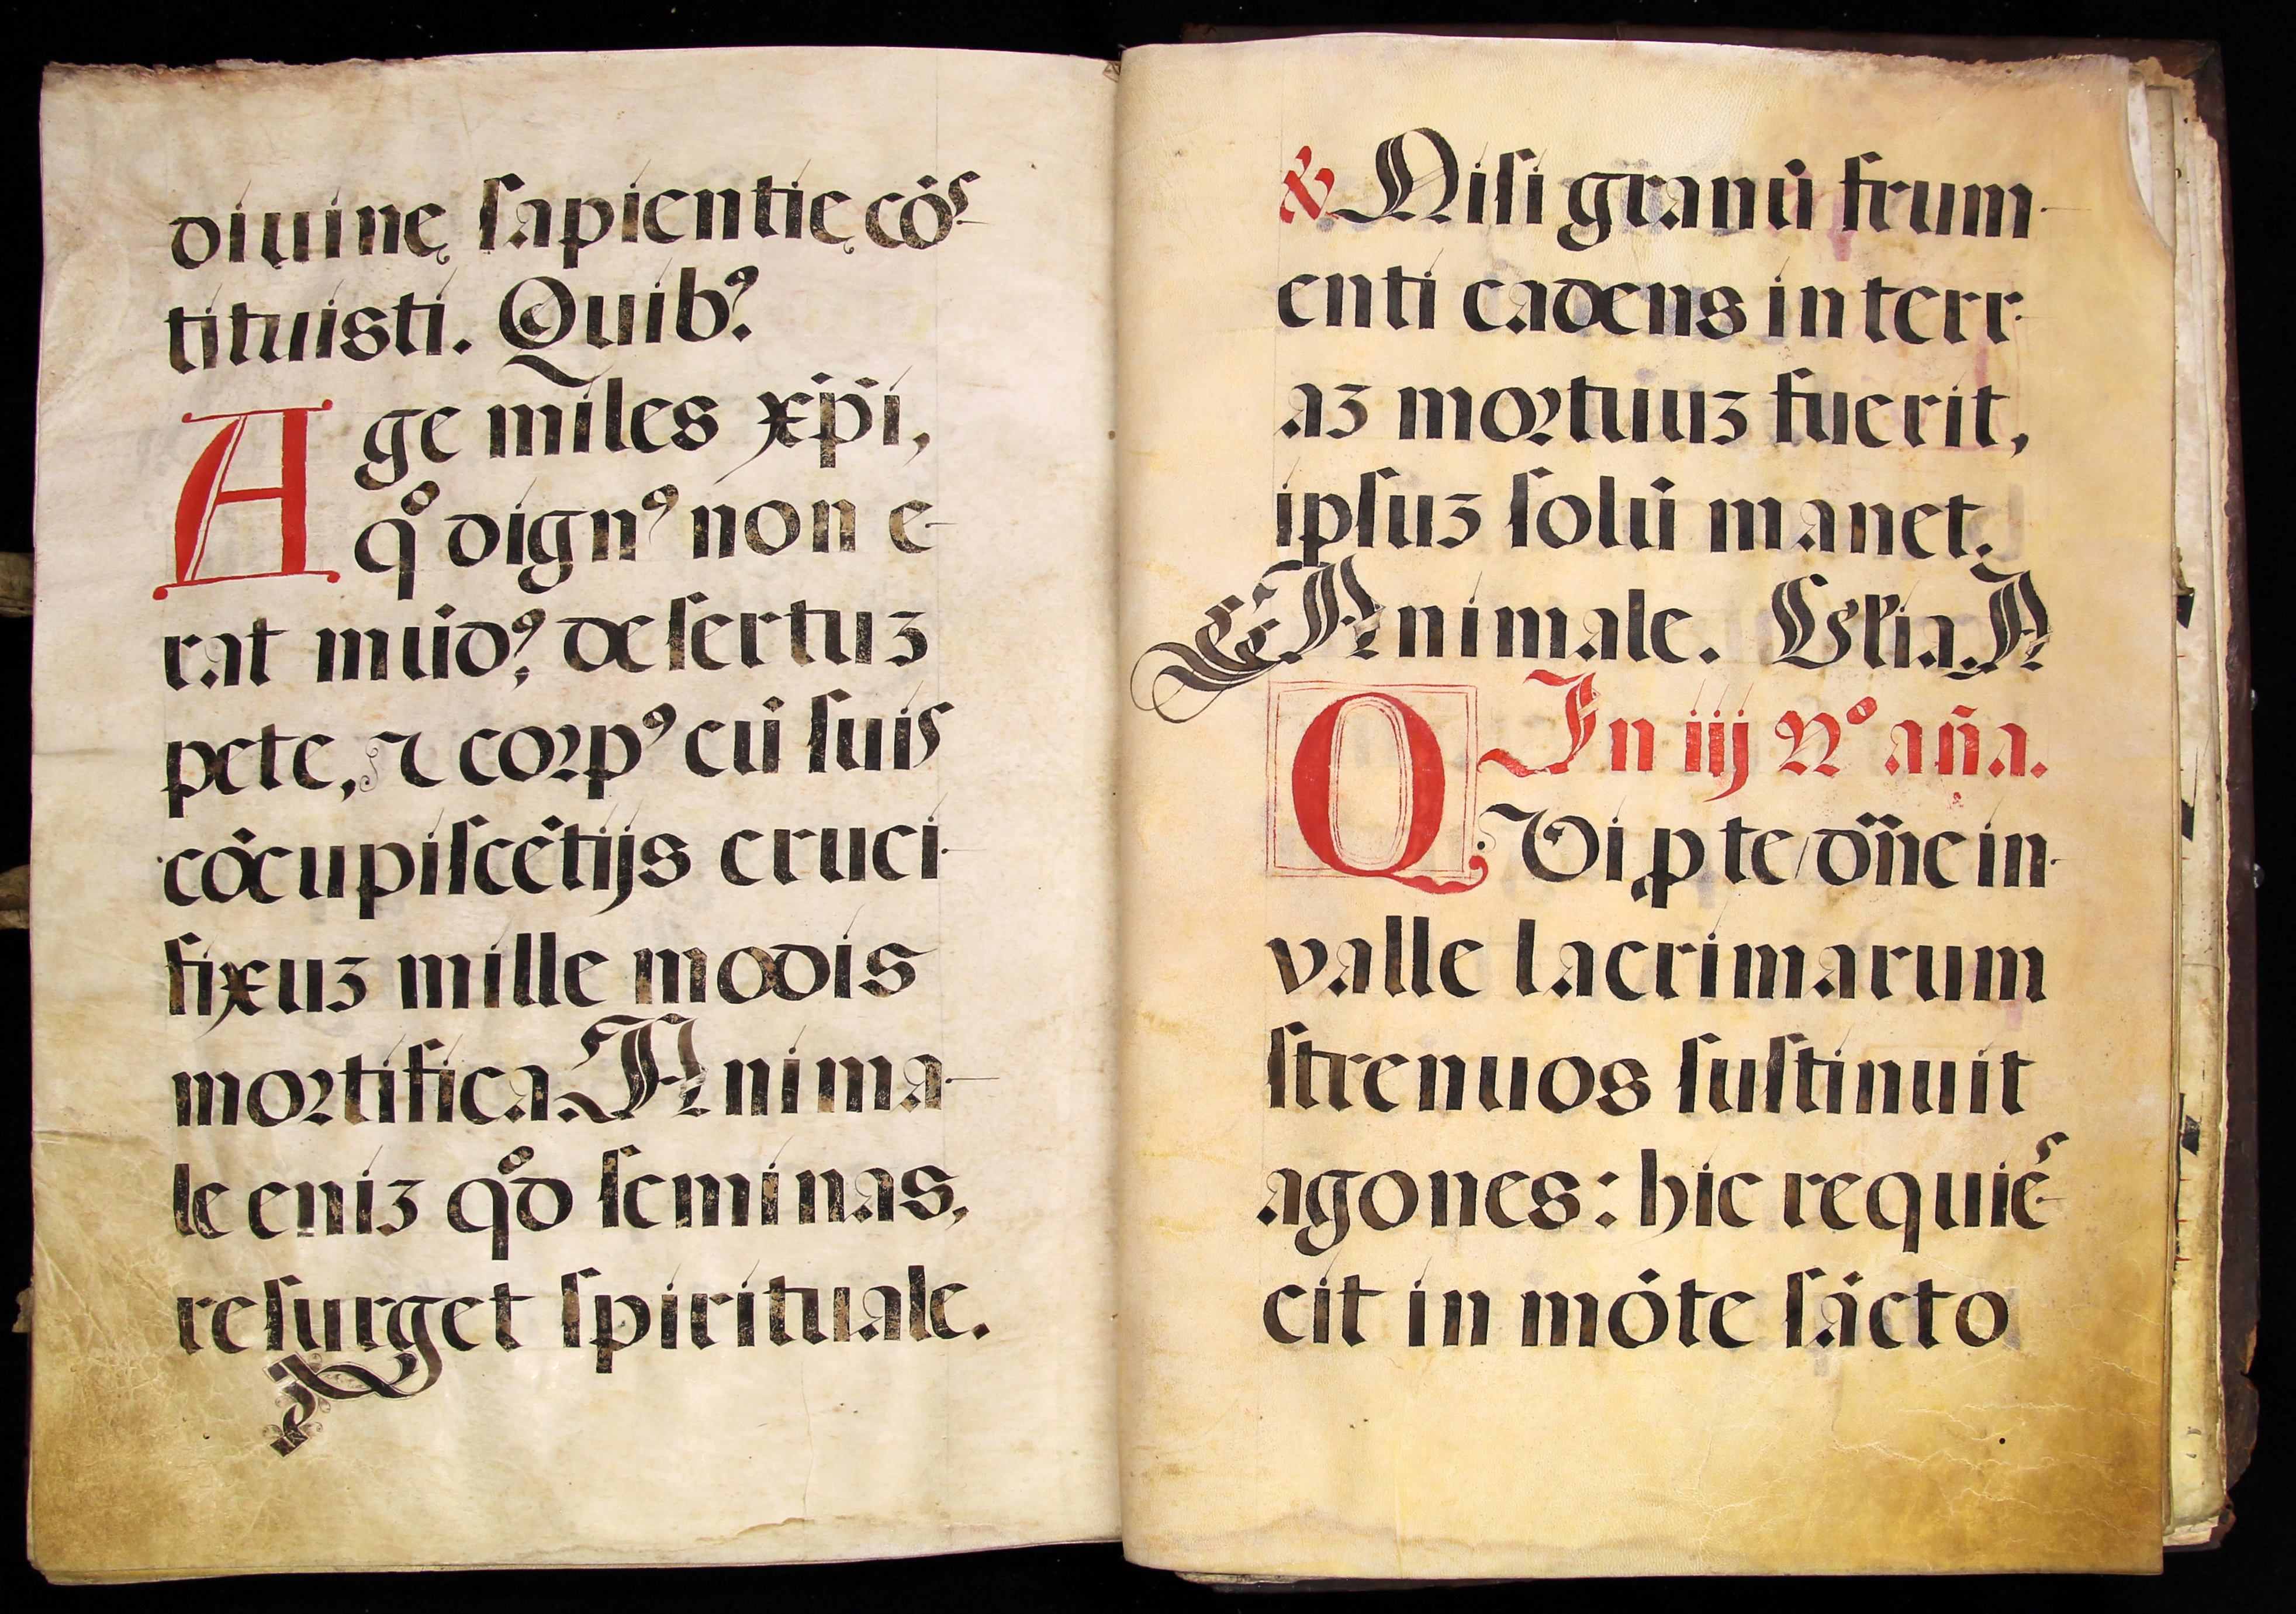 diuinę ſapientię cós-
tituisti. Quibꝰ.
Age miles xp̄i,
qͦ dignꝰ non e-
rat mūdꝰ, deſertuꝫ
pete, ⁊ coꝛpꝰ cū ſuis
cōcupiſcētijs cruci-
fixuꝫ mille modis
moꝛtifica. Anima-
le eniꝫ qͦd ſeminas,
reſurget ſpirituale.
& Niſi granū frum-
enti cadens in terr-
aꝫ moꝛtuuꝫ fuerit,
ipſuꝫ ſolū manet.
Animale. Gl̄ia. A
In iij Nͦ. añа.
QVi ꝓ te dn̄e in
valle lacrimarum
ſtrenuos ſuſtinuit
agones: hic requieſ-
cit in mōte ſācto